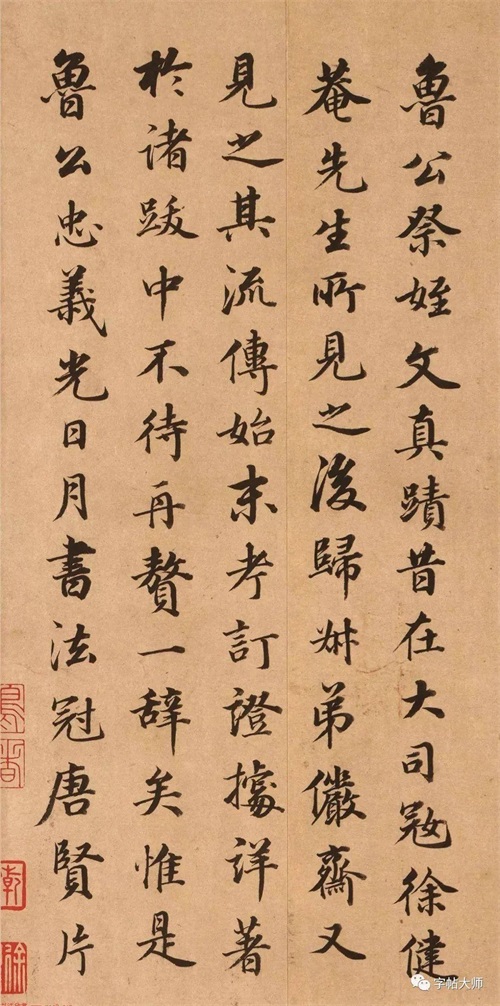 魯公祭姪文真蹟昔在大司寇徐健
菴先生所見之後歸㪽弟儼齋又
見之其流傳始末考訂證據詳著
於諸跋中不待再贅一辭矣惟是
魯公忠義光日月書法冠唐賢片
字帖大师